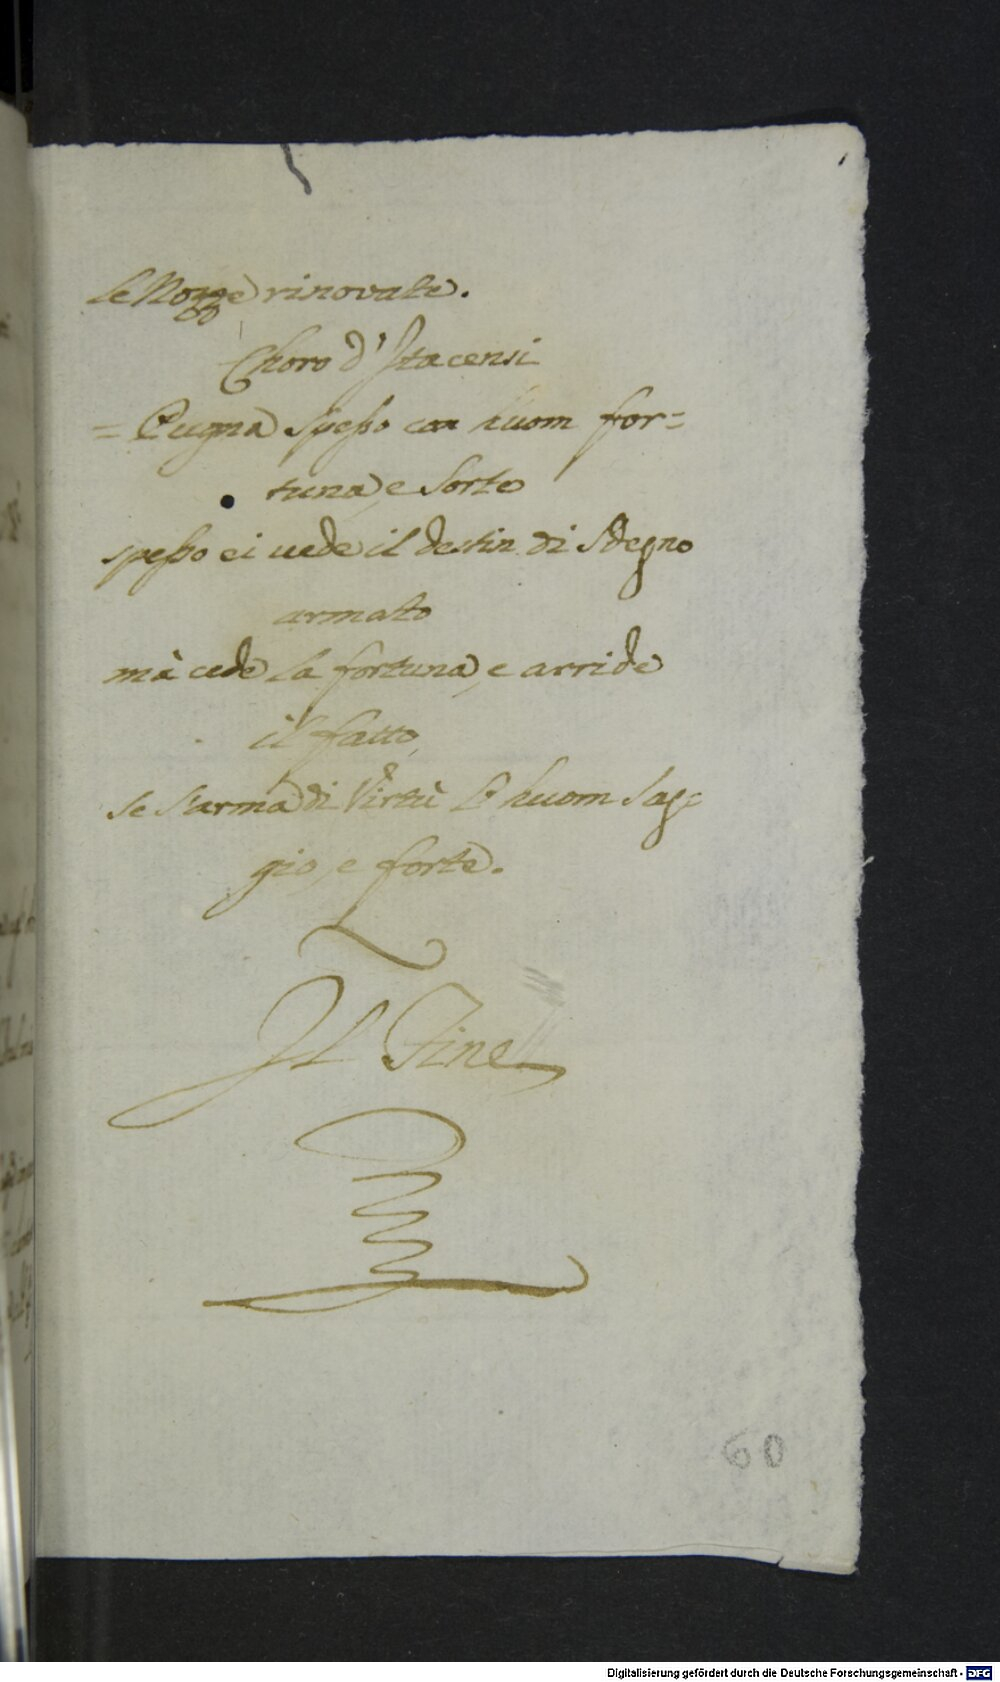 le Nozze rinovate.
Choro d'Itacensi
= Pugna speßo con huom for=
tuna, e Sorte
speßo ei uede il destin di Sdegno
armato
mà cede la fortuna, e arride
il fatto,
se s'arma di Virtù l'huom sag=
gio, e forte.
Il Fine
60
Digitalisierung gefördert durch die Deutsche Forschungsgemeinschaft - DFG